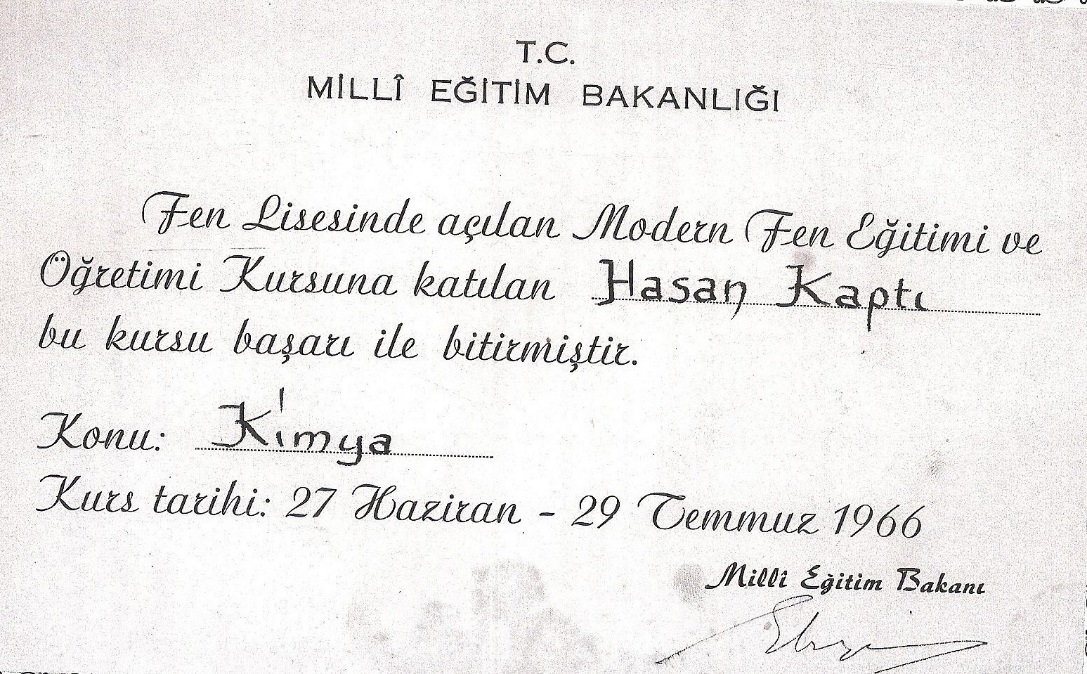 T.C.
MİLLÎ EĞİTİM BAKANLIĞI
Fen Lisesinde açılan Modern Fen Eğitimi ve
Öğretimi Kursuna katılan Hasan Kaptı
bu kursu başarı ile bitirmiştir.
Konu: Kimya
Kurs tarihi: 27 Haziran - 29 Temmuz 1966
Millî Eğitim Bakanı